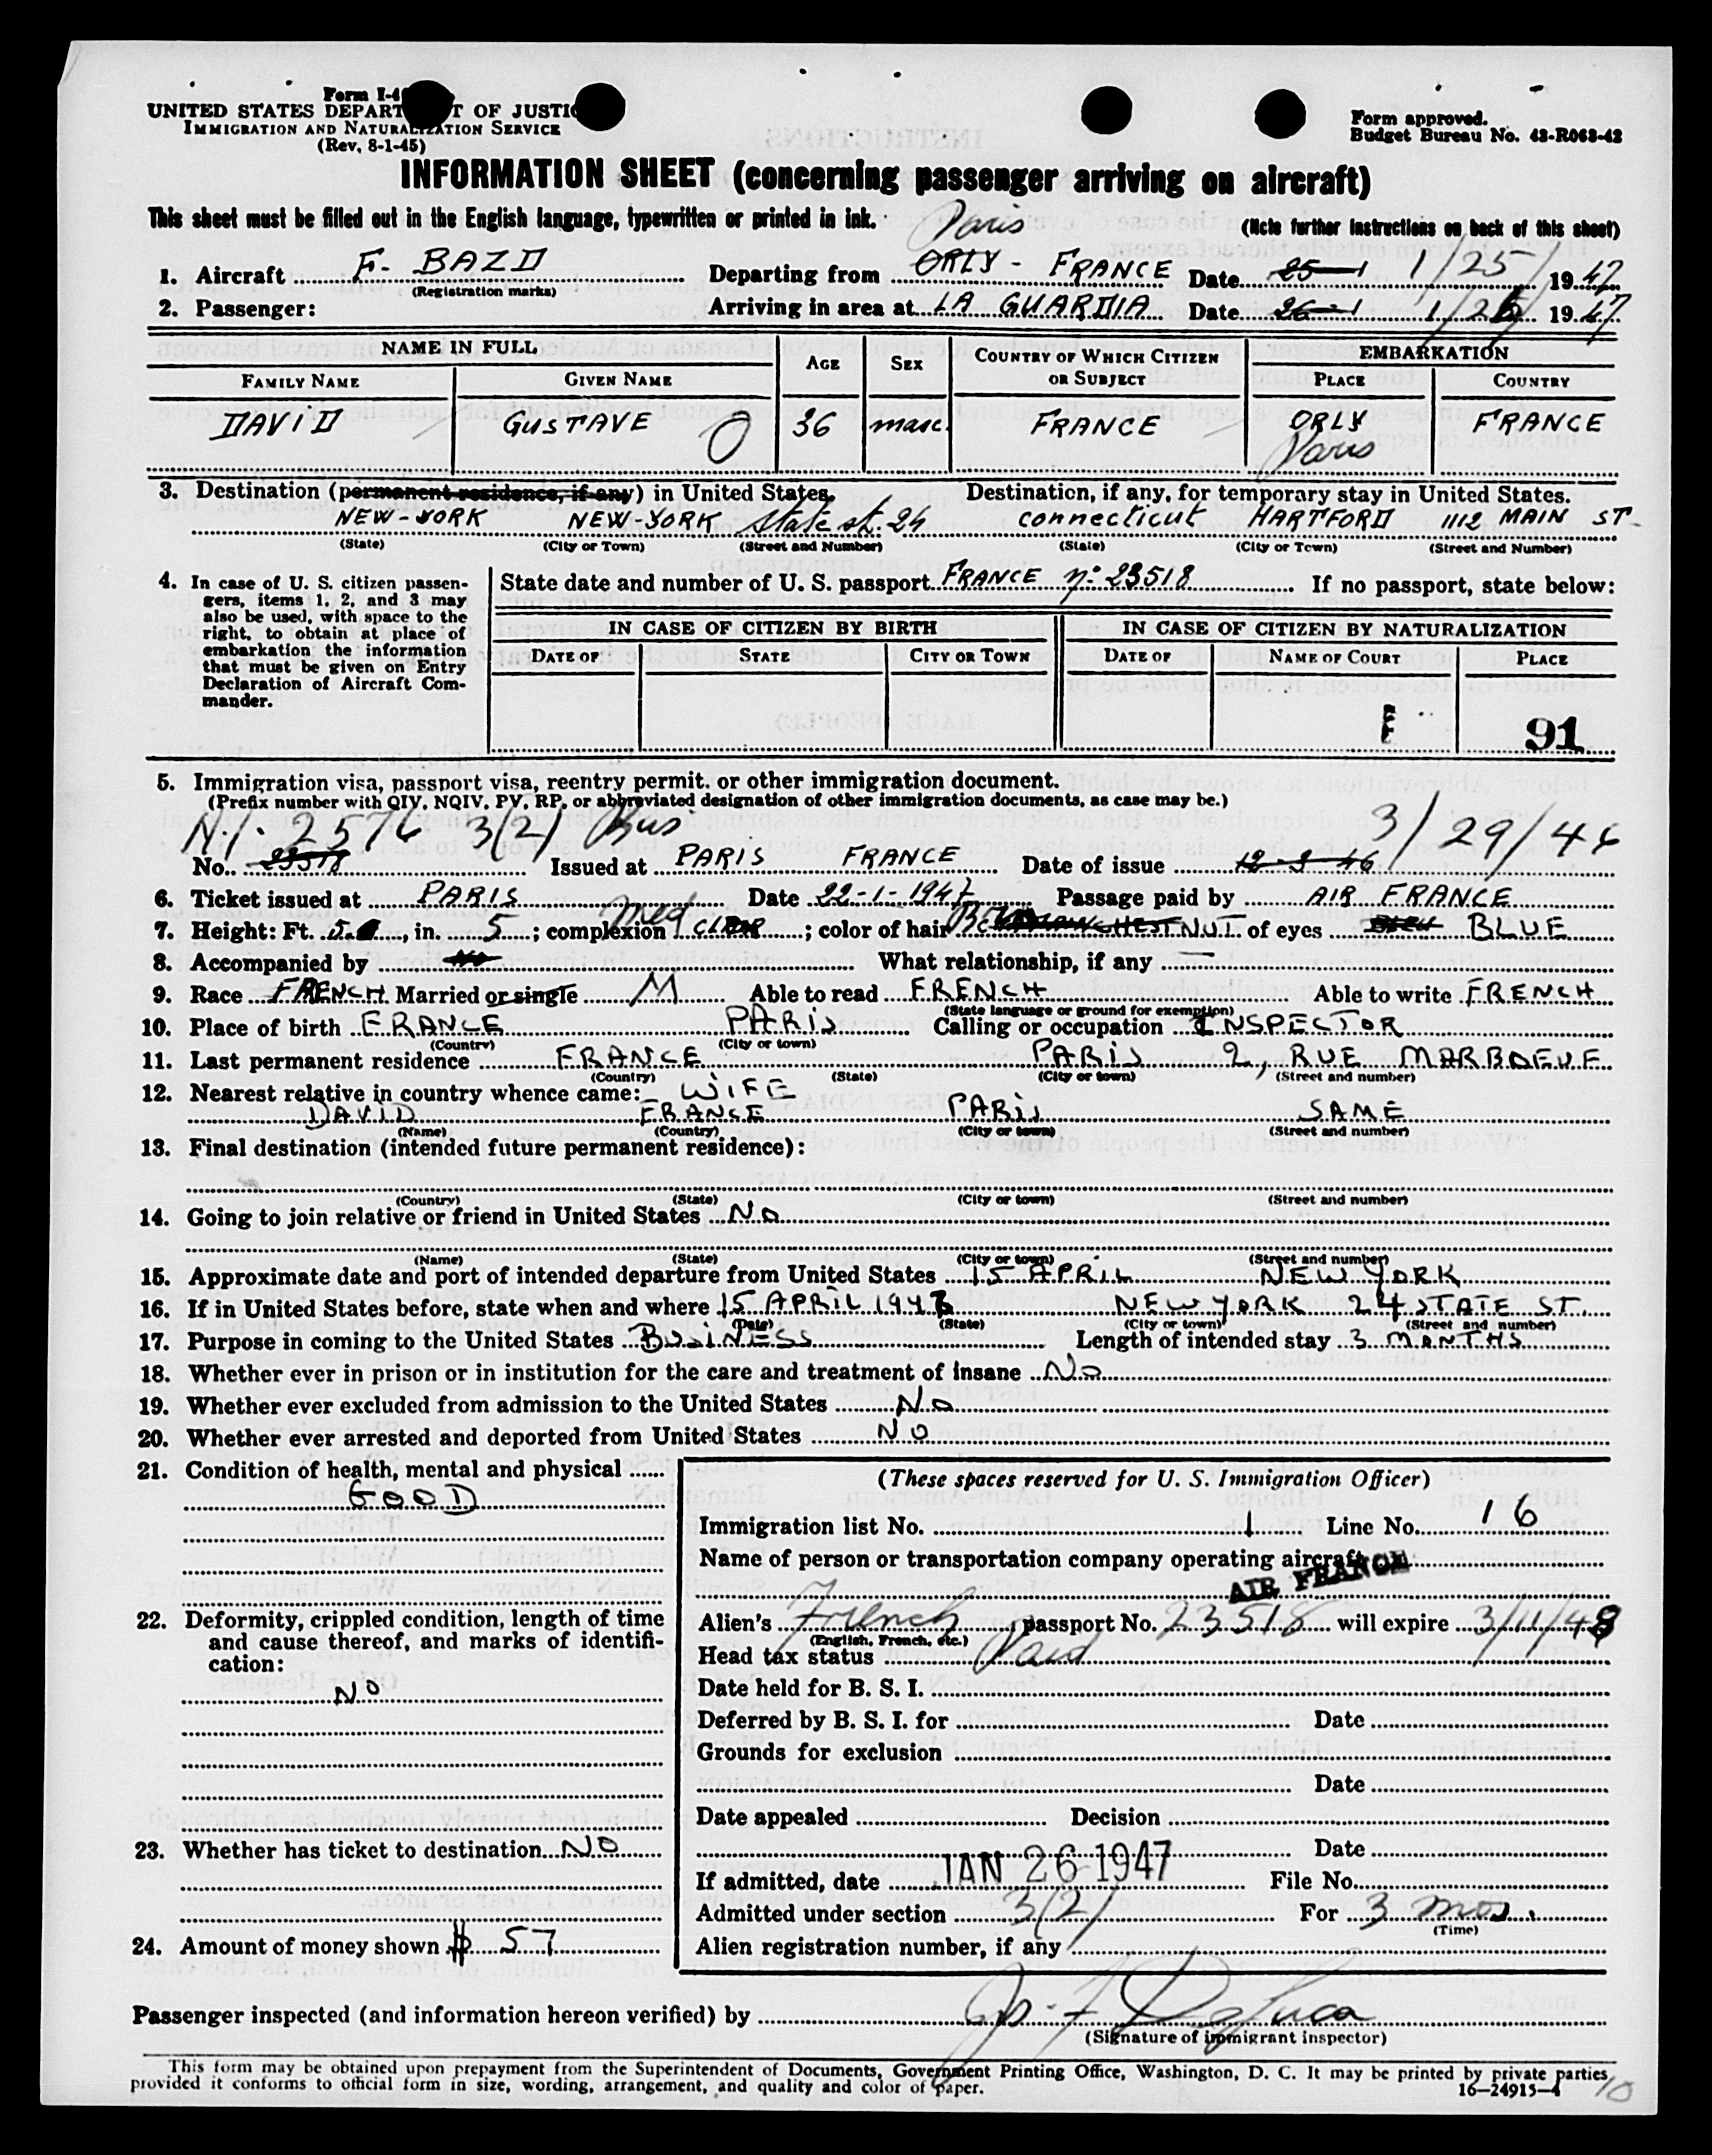 Form I-4
UNITED STATES DEPART T OF JUSTI
IMMIGRATION AND NATURALIZATION SERVICE
(Rev. 8-1-45)
Form approved.
Budget Bureau No. 43-R063-42
INFORMATION SHEET (concerning passenger arriving on aircraft)
This sheet must be filled out in the English language, typewritten or printed in ink. (Note further instructions on back of this sheet)
Paris
1. Aircraft F. BAZD Departing from ORLY - FRANCE Date 25-1 1/25/ 1947
(Registration marks)
2. Passenger: Arriving in area at LA GUARDIA Date 26-1 1/26/ 1947
NAME IN FULL AGE SEX COUNTRY OF WHICH CITIZEN OR SUBJECT EMBARKATION
FAMILY NAME GIVEN NAME PLACE COUNTRY
DAVID GUSTAVE 36 masc. FRANCE ORLY FRANCE
Paris
3. Destination (permanent residence, if any) in United States. Destination, if any, for temporary stay in United States.
NEW-YORK NEW-YORK State st. 24 connecticut HARTFORD 1112 MAIN ST.
(State) (City or Town) (Street and Number) (State) (City or Town) (Street and Number)
4. In case of U. S. citizen passengers, items 1, 2, and 3 may also be used, with space to the right, to obtain at place of embarkation the information that must be given on Entry Declaration of Aircraft Commander.
State date and number of U. S. passport FRANCE n° 23518 If no passport, state below:
IN CASE OF CITIZEN BY BIRTH IN CASE OF CITIZEN BY NATURALIZATION
DATE OF STATE CITY OR TOWN DATE OF NAME OF COURT PLACE
91
5. Immigration visa, passport visa, reentry permit, or other immigration document.
(Prefix number with QIV, NQIV, PV, RP, or abbreviated designation of other immigration documents, as case may be.)
N.I. 2576 3(2) Bus 3/29/46
No. 23518 Issued at PARIS FRANCE Date of issue 12-3-46
6. Ticket issued at PARIS Date 22-1-1947 Passage paid by AIR FRANCE
7. Height: Ft. 5, in. 5; complexion med CLEAR; color of hair CHESTNUT of eyes BLUE
8. Accompanied by No What relationship, if any —
9. Race FRENCH Married or single M Able to read FRENCH Able to write FRENCH
(State language or ground for exemption)
10. Place of birth FRANCE PARIS Calling or occupation INSPECTOR
(Country) (City or town)
11. Last permanent residence FRANCE PARIS 2, RUE MARBOEUF
(Country) (State) (City or town) (Street and number)
12. Nearest relative in country whence came: WIFE
DAVID FRANCE PARIS SAME
(Name) (Country) (City or town) (Street and number)
13. Final destination (intended future permanent residence):
(Country) (State) (City or town) (Street and number)
14. Going to join relative or friend in United States No
(Name) (State) (City or town) (Street and number)
15. Approximate date and port of intended departure from United States 15 APRIL NEW YORK
16. If in United States before, state when and where 15 APRIL 194 NEW YORK 24 STATE ST.
(Date) (State) (City or town) (Street and number)
17. Purpose in coming to the United States BUSINESS Length of intended stay 3 MONTHS
18. Whether ever in prison or in institution for the care and treatment of insane No
19. Whether ever excluded from admission to the United States No
20. Whether ever arrested and deported from United States NO
21. Condition of health, mental and physical
GOOD
22. Deformity, crippled condition, length of time and cause thereof, and marks of identification:
NO
23. Whether has ticket to destination NO
24. Amount of money shown $ 57
(These spaces reserved for U. S. Immigration Officer)
Immigration list No. 1 Line No. 16
Name of person or transportation company operating aircraft
AIR FRANCE
Alien's French passport No. 23518 will expire 3/11/48
(English, French, etc.)
Head tax status Paid
Date held for B. S. I.
Deferred by B. S. I. for Date
Grounds for exclusion
Date
Date appealed Decision
Date
If admitted, date JAN 26 1947 File No.
Admitted under section 3(2) For 3 mos.
(Time)
Alien registration number, if any
Passenger inspected (and information hereon verified) by
(Signature of immigrant inspector)
This form may be obtained upon prepayment from the Superintendent of Documents, Government Printing Office, Washington, D. C. It may be printed by private parties
provided it conforms to official form in size, wording, arrangement, and quality and color of paper. 16—24915-4
10